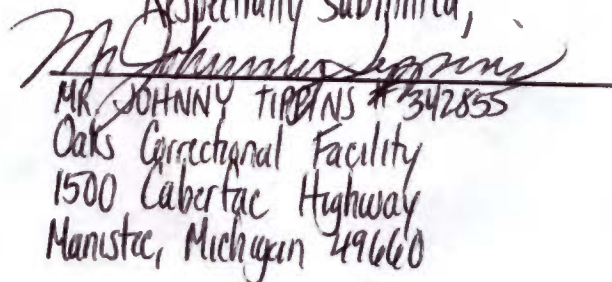 Respectfully Submitted,
Mr. Johnny Tippins
MR. JOHNNY TIPPINS # 342855
Oaks Correctional Facility
1500 Caberfae Highway
Manistee, Michigan 49660